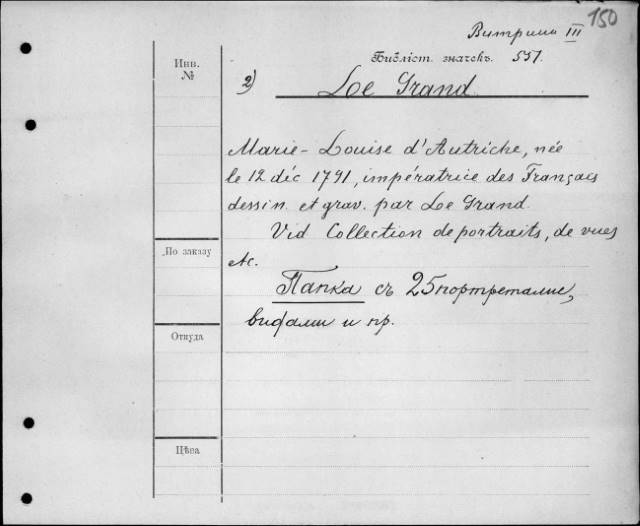 150
Витрина III
Библіот. значекъ. 551.
Инв.
№
2) Loe Grand
Marie-Louise d'Autriche, née
le 12 déc 1791, impératrice des Français
dessin. et grav. par Loe Grand.
Vid Collection de portraits, de vues
etc.
По заказу
Папка съ 25 портретами,
видами и пр.
Откуда
Цѣна